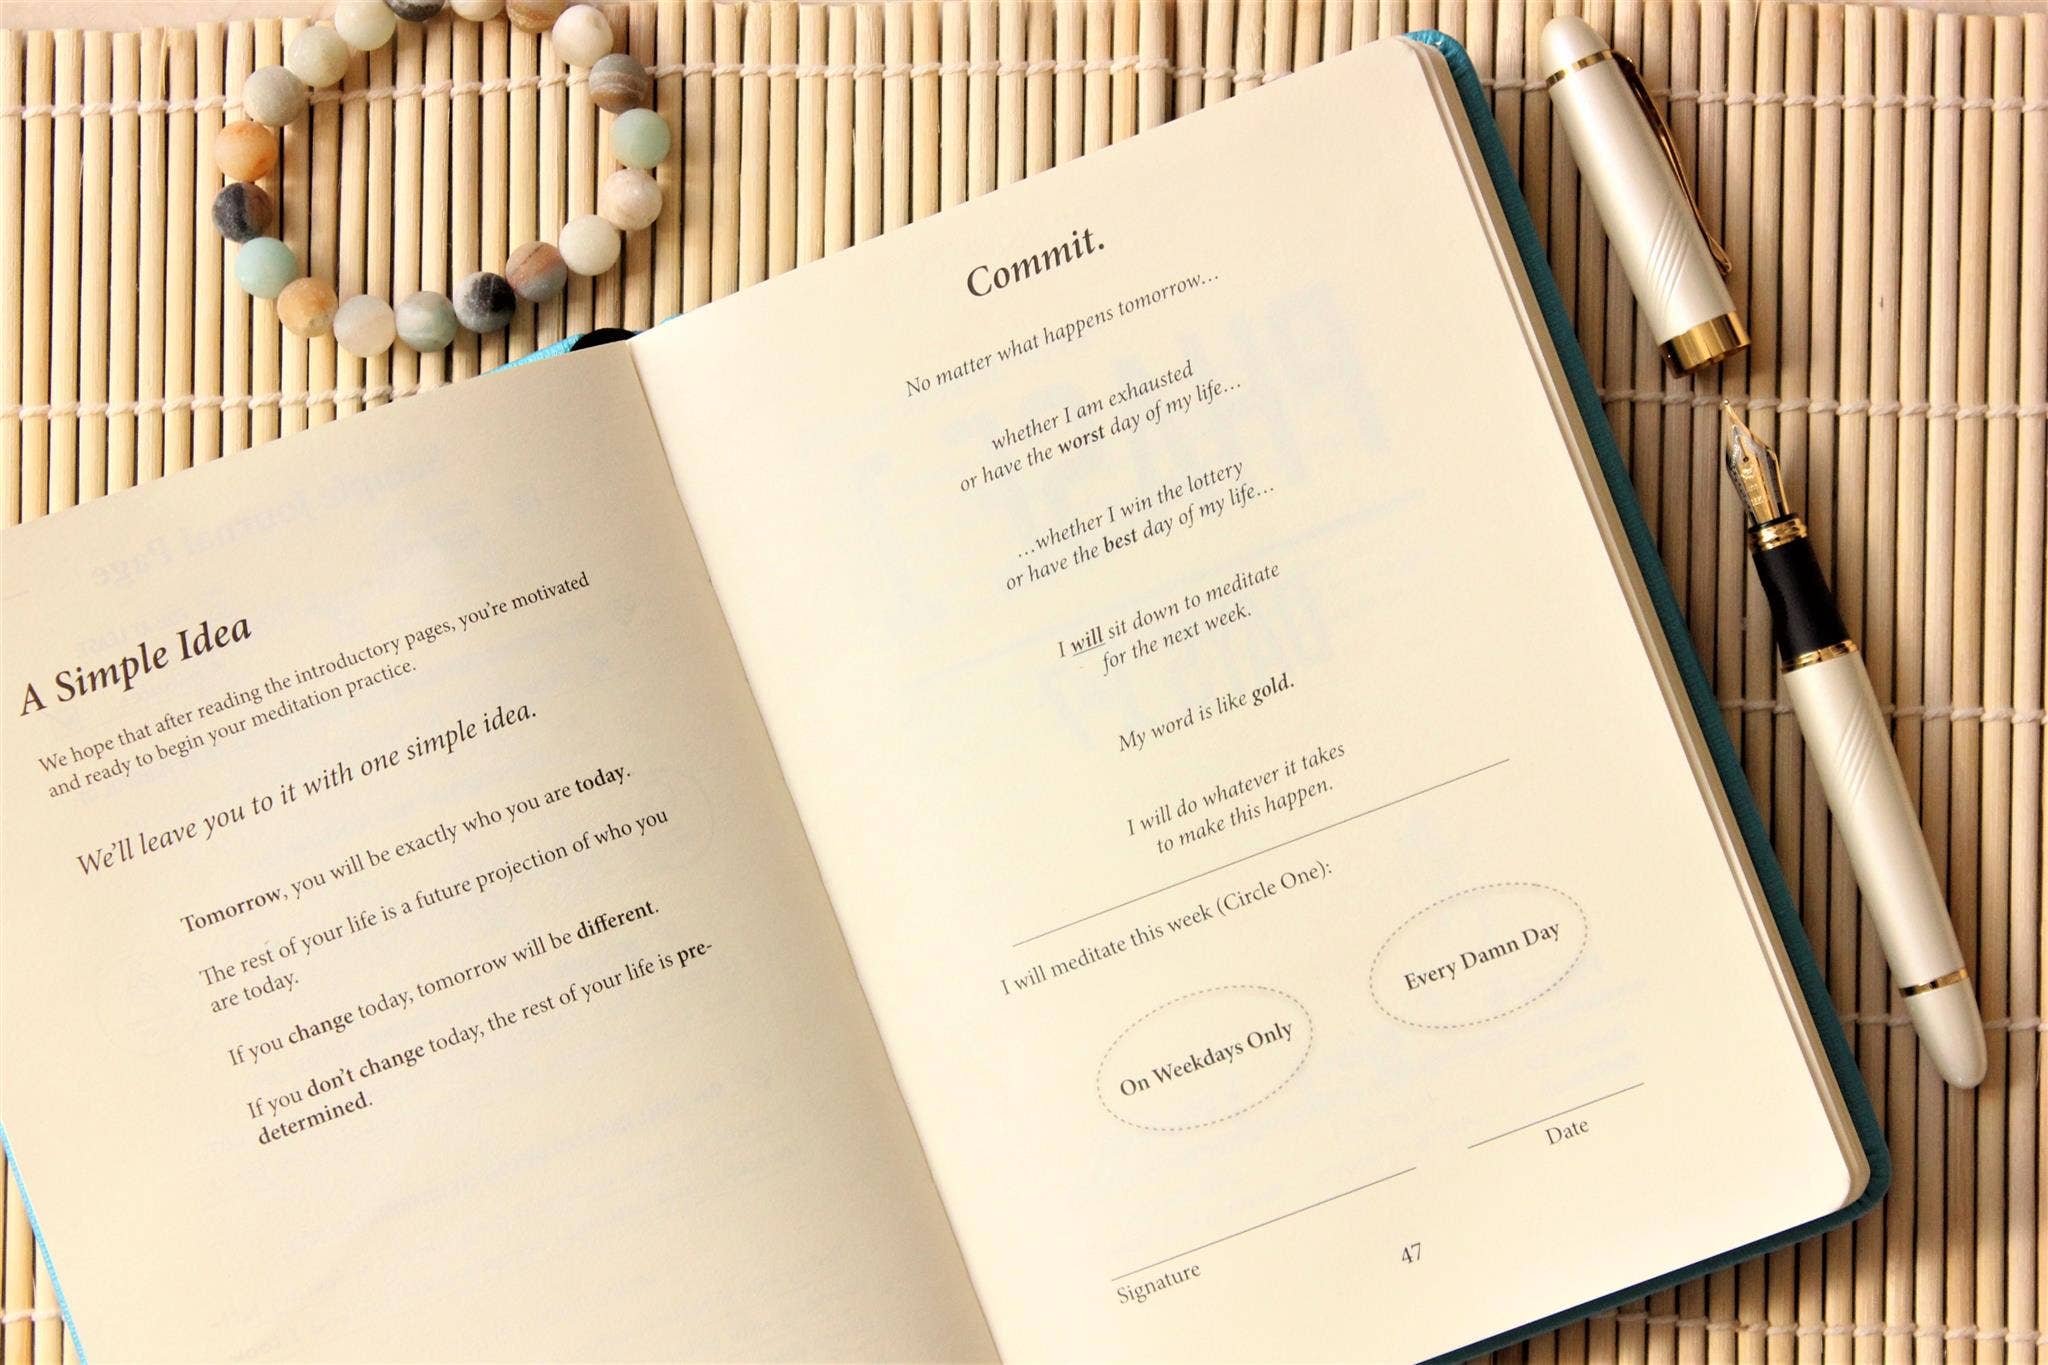 A Simple Idea
We hope that after reading the introductory pages, you're motivated
and ready to begin your meditation practice.
We'll leave you to it with one simple idea.
Tomorrow, you will be exactly who you are today.
The rest of your life is a future projection of who you
are today.
If you change today, tomorrow will be different.
If you don't change today, the rest of your life is pre-
determined.
Commit.
No matter what happens tomorrow...
whether I am exhausted
or have the worst day of my life...
...whether I win the lottery
or have the best day of my life...
I will sit down to meditate
for the next week.
My word is like gold.
I will do whatever it takes
to make this happen.
I will meditate this week (Circle One):
On Weekdays Only
Every Damn Day
Signature
Date
47